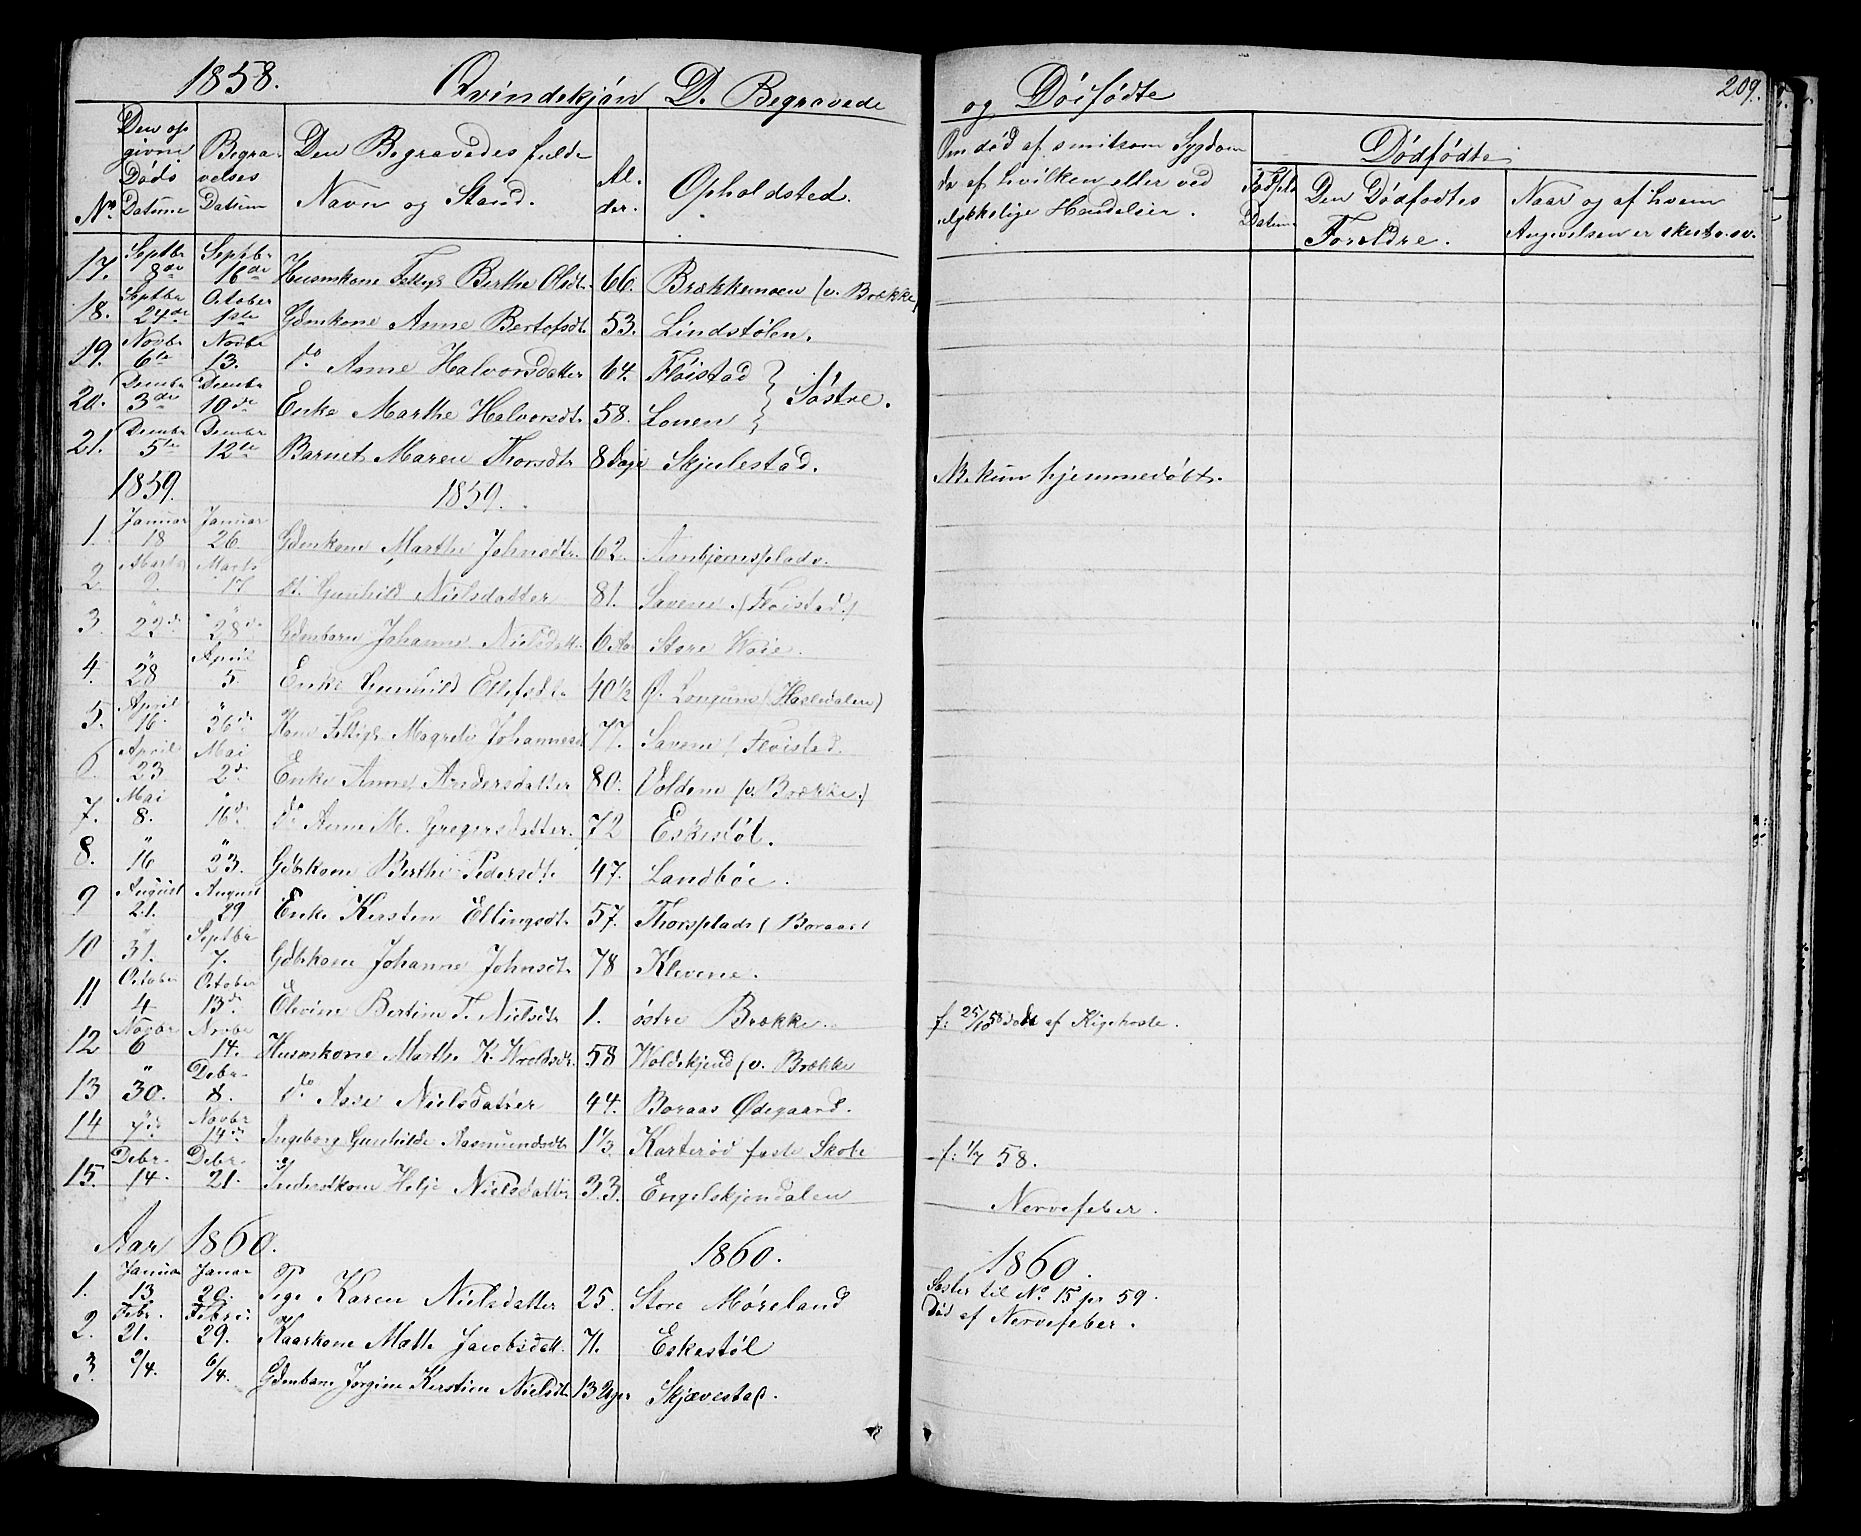 1858. Qvindekjön D. Begravede og Döifödte 209.
No Den opgivne Döds Datum Begravelses Datum Den Begravedes fulde Navn og Stand. Alder. Opholdsted. Om död af smitsom Sygdom da af hvilken eller ved ulykkelige Hendelser. Födsels Datum Dödfödte Den Dödfödtes Foreldre. Naar og af hvem Angivelsen er skeet o.sv.
17. Septbr 8de Septbr 16de Huusmkone Berthe Olsdt. 66. Brækkemoen (v. Brække)
18. Septbr 24de October 1ste Gdmkone Anne Bertofsdt. 53. Lindstölen.
19. Novbr 6te Novbr 13. do Anne Halvorsdatter 64. Flöistad } Söstre.
20. Decmbr 3die Decmbr 10de Enke Marthe Halvorsdt. 58. Lonen
21. Decmbr 5te Decmbr 12te Barnet Maren Thorsdt. 8 Dage Skjulestad. NB. kun hjemmedöbt.
1859. 1859.
1. Januar 18 Januar 26. Gdmkone Marthe Johnsdtr. 62. Asnbjörnsplads.
2. Marts 9. Marts 17 do. Gunhild Nielsdatter 81. Savene. (Flöistad.)
3. " 22de " 28de Gdmbarn Johanne Nielsdatter 6 Aar Store
4. " 28 April 5. Enke Gunhild Ellefsdtr 40½ Ö. Longum (Hasledalen)
5. April 16. " 26de Kone Magrete Johannesd 77. Savene (Flöistad.
6. April 23 Mai 2de Enke Anne Andersdatter 80. Voldene (v. Brække.)
7. Mai 8. " 16de do Anne M. Gregersdatter. 72 Eskestöl.
8. " 16 " 23. Gdskone Berthe Pedersdt. 47. Landböe.
9 August 21. August 29 Enke Kersten Ellingsdt. 57. Thorsplads (Boraas)
10 " 31. Septbr 7. Gdbkone Johanne Johnsdt. 78 Klevene.
11 October 4 October 13de Elevine Bertine T. Nielsdt 1. östre Brække. f: 25/10 58 döde af Kighoste.
12 Novbr 6 Novbr 14. Huusmkone Marthe K. Wroldsdt. 58 Woldskjend (v. Brække
13 " 30. Debr. 8. do Aase Nielsdatter 44. Boraas Ödegaard.
14 " 7de Novbr 14de Ingeborg Gunhilde Aasmundsdtr 1⅓. Karteröd faste Skole f: 1/7 58.
15. Debr. 14. Debr. 21. Inderstkone Helje Nielsdatter 33. Engelskjendalen Nervefeber.
Aar 1860. 1860. 1860.
1. Januar 13 Januar 20. Pige Karen Nielsdatter 25. Store Möreland Söster til No 15 pr 59. Död af Nervefeber.
2. Febr. 21. Febr: 29. Kaarkone Mette Jacobsdatt. 71. Eskestöl
3. 2/4. 6/4. Gdmbarn Jörgine Kerstine Nielsdt. 13 Uger Skjævestad.